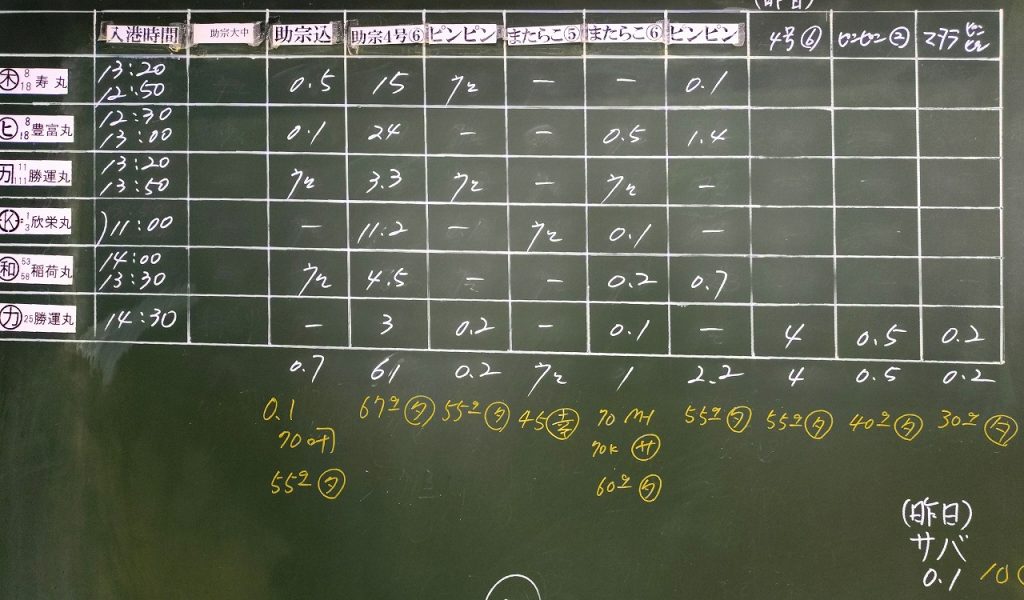 (昨日)
入港時間 助宗大中 助宗込 助宗4号⑥ ピンピン またらこ⑤ またらこ⑥ ピンピン 4号⑥ ピンピン② マダラ ピンピン
㊍ 8 18 寿丸 13:20 12:50 0.5 15 ケ – – 0.1
ヒ 8 18 豊富丸 12:30 13:00 0.1 24 – – 0.5 1.4
カ 11 111 勝運丸 13:20 13:50 ケ 3.3 ケ – ケ –
Ⓚ 1 3 欣栄丸 11:00 – 11.2 – ケ 0.1 –
和 53 58 稲荷丸 14:00 13:30 ケ 4.5 – – 0.2 0.7
カ 25 勝運丸 14:30 – 3 0.2 – 0.1 – 4 0.5 0.2
0.7 61 0.2 ケ 1 2.2 4 0.5 0.2
0.1 67 タ 55 タ 45 幸 70 55 タ 55 タ 40 タ 30 タ
70 70K サ
55 タ 60 タ
(昨日)
サバ
0.1 10